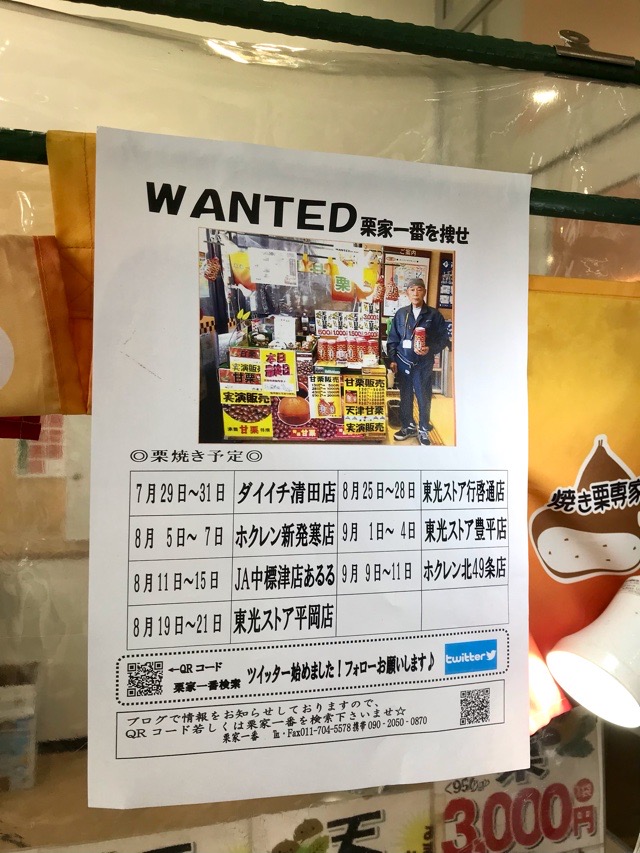 WANTED 栗家一番を捜せ
ご案内
栗
本日
実演販売
甘栗販売
甘栗販売
天津甘栗
実演販売
甘栗
実演販売
◎栗焼き予定◎
7月29日～31日 ダイイチ清田店 8月25日～28日 東光ストア行啓通店
8月 5日～ 7日 ホクレン新発寒店 9月 1日～ 4日 東光ストア豊平店
8月11日～15日 JA中標津店あるる 9月 9日～11日 ホクレン北49条店
8月19日～21日 東光ストア平岡店
←QRコード
栗家一番検索
ツイッター始めました！フォローお願いします♪
twitter
ブログで情報をお知らせしておりますので、
QRコード若しくは栗家一番を検索下さいませ☆
栗家一番 ℡・Fax011-704-5578 携帯 090-2050-0870
焼き栗専家
3,000円
天